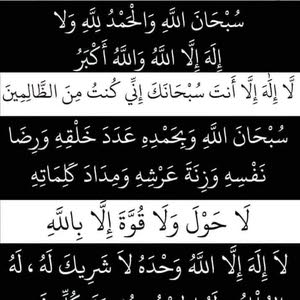 سُبْحَانَ اللَّهِ وَالْحَمْدُ لِلَّهِ وَلا
إِلَهَ إِلَّا اللَّهُ وَاللَّهُ أَكْبَرُ
لَّا إِلَٰهَ إِلَّا أَنتَ سُبْحَانَكَ إِنِّي كُنتُ مِنَ الظَّالِمِينَ
سُبْحَانَ اللَّهِ وَبِحَمْدِهِ عَدَدَ خَلْقِهِ وَرِضَا
نَفْسِهِ وَزِنَةَ عَرْشِهِ وَمِدَادَ كَلِمَاتِهِ
لَا حَوْلَ وَلَا قُوَّةَ إِلَّا بِاللَّهِ
لاَ إِلَهَ إِلَّا اللَّهُ وَحْدَهُ لاَ شَرِيكَ لَهُ، لَهُ